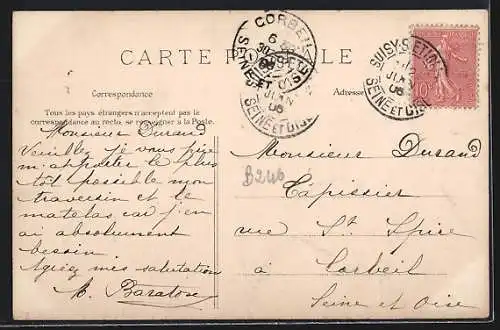 CARTE POSTALE
Correspondance
Tous les pays étrangers n'acceptent pas la
correspondance au recto, se renseigner à la Poste.
Adresse
CORBEIL
6
30
SEINE ET OISE
SEINE ET OISE
06
SUISY-S-ETIOLLES
06
SEINE ET OISE
10
Monsieur Durand
Veuillez je vous prie
m'apporter le plus
tôt possible mon
traversin et le
matelas car j'en
ai absolument
besoin
Agréez mes salutation
B. Baraton
Monsieur Durand
Tapissier
B246
rue St Spire
à Corbeil
Seine et Oise